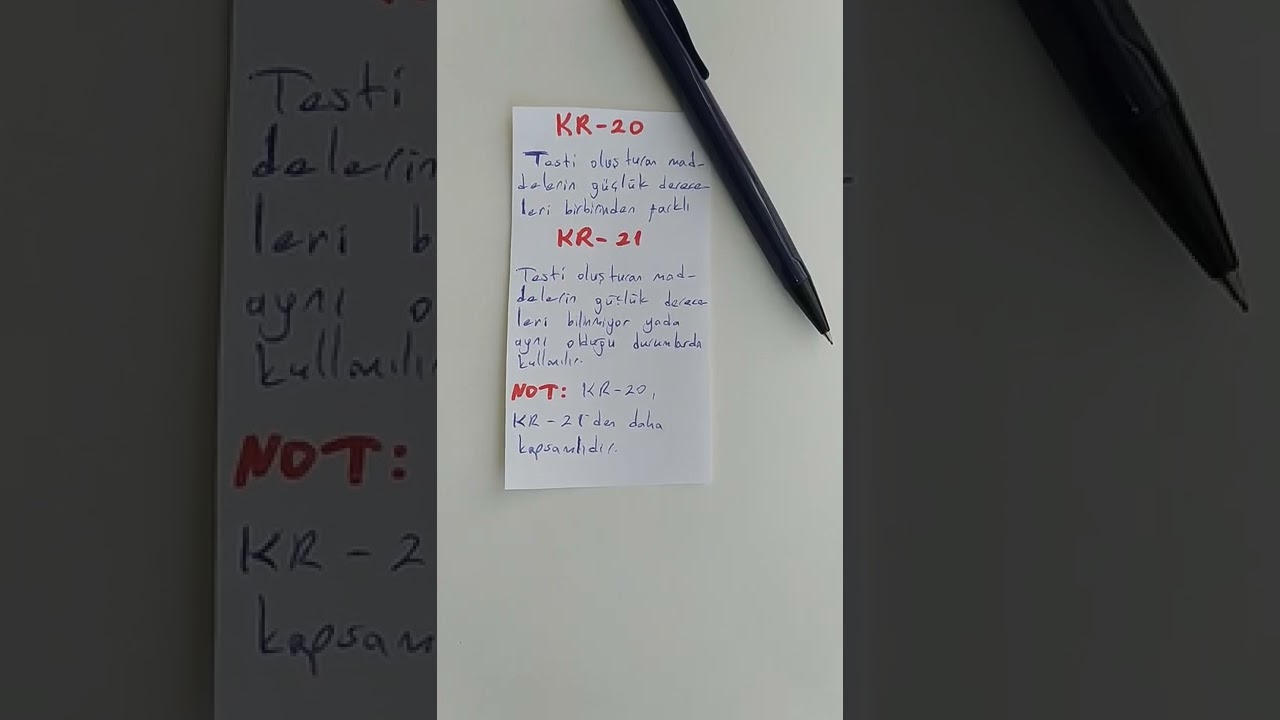 KR-20
Testi oluşturan mad-
delerin güçlük derece-
leri birbirinden farklı
KR-21
Testi oluşturan mad-
delerin güçlük derece-
leri bilinmiyor yada
aynı olduğu durumlarda
kullanılır.
NOT: KR-20,
KR-21'den daha
kapsamlıdır.